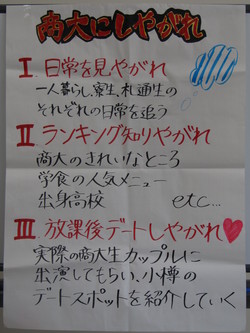 商大にしやがれ
I 日常を見やがれ
一人暮らし、寮生、札通生の
それぞれの日常を追う
II ランキング知りやがれ
商大のきれいなところ
学食の人気メニュー
出身高校 etc...
III 放課後デートしやがれ♥
実際の商大生カップルに
出演してもらい、小樽の
デートスポットを紹介していく